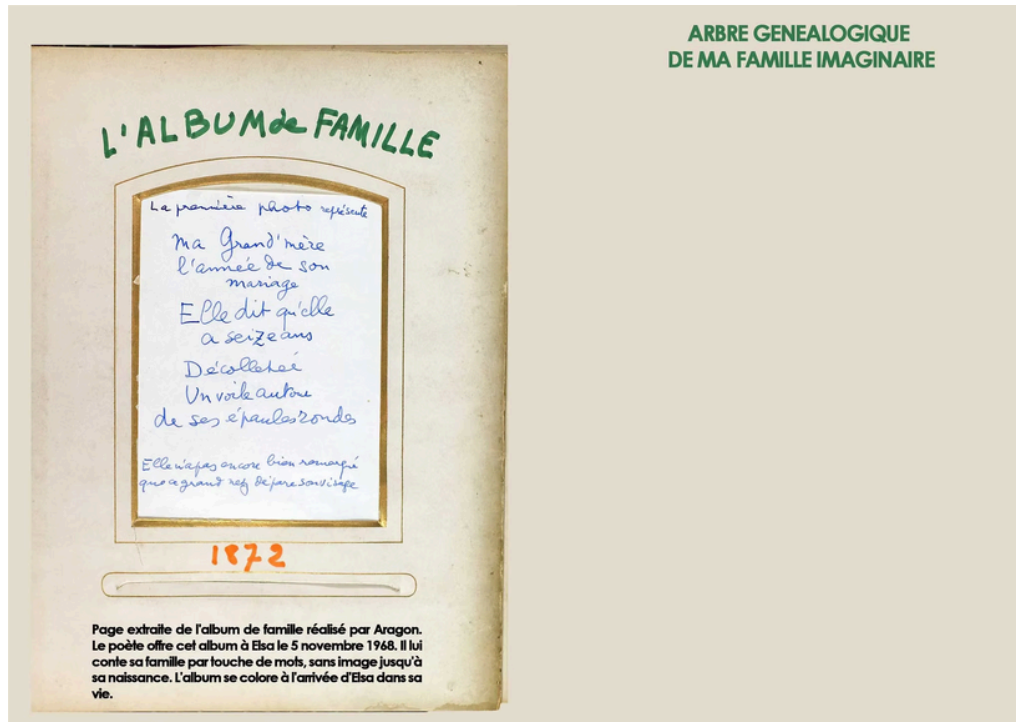 L'ALBUM de FAMILLE
La première photo représente
ma Grand'mère
l'année de son
mariage
Elle dit qu'elle
a seize ans
Décolletée
Un voile autour
de ses épaules rondes
Elle n'a pas encore bien remarqué
que ce grand nez dépare son visage
1872
Page extraite de l'album de famille réalisé par Aragon.
Le poète offre cet album à Elsa le 5 novembre 1968. Il lui
conte sa famille par touche de mots, sans image jusqu'à
sa naissance. L'album se colore à l'arrivée d'Elsa dans sa
vie.
ARBRE GENEALOGIQUE
DE MA FAMILLE IMAGINAIRE